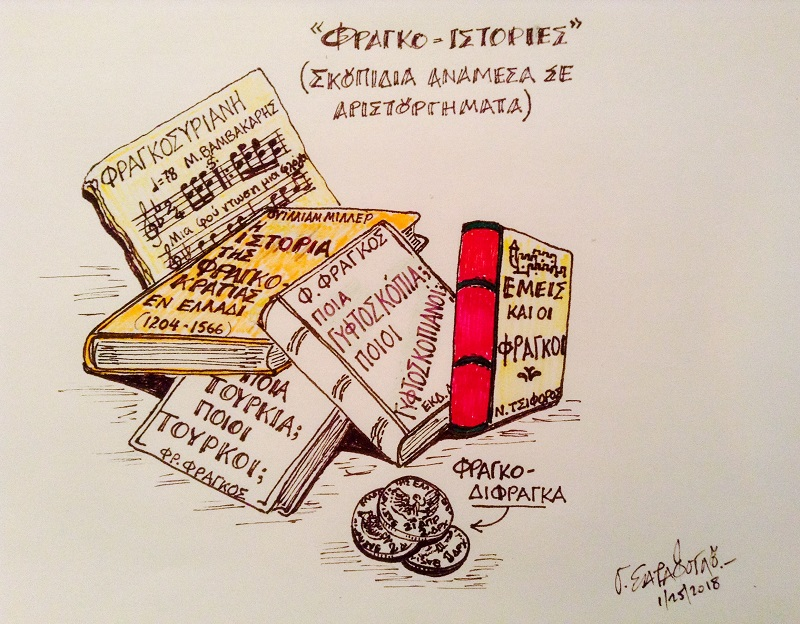 “ΦΡΑΓΚΟ-ΙΣΤΟΡΙΕΣ”
(ΣΚΟΠΙΔΙΑ ΑΝΑΜΕΣΑ ΣΕ
ΑΡΙΣΤΟΥΡΓΗΜΑΤΑ)
ΦΡΑΓΚΟΣΥΡΙΑΝΗ
♩=78 Μ. ΒΑΜΒΑΚΑΡΗΣ
Μια φού ντωση μια
ΟΥΙΛΛΙΑΜ ΜΙΛΛΕΡ
Η
ΙΣΤΟΡΙΑ
ΤΗΣ
ΦΡΑΓΚΟ-
ΚΡΑΤΙΑΣ
ΕΝ ΕΛΛΑΔΙ
(1204-1566)
Φ. ΦΡΑΓΚΟΣ
ΠΟΙΑ
ΓΥΦΤΟΣΚΟΠΙΑ;
ΠΟΙΟΙ
ΓΥΦΤΟΣΚΟΠΙΑΝΟΙ;
ΕΚΔ.
ΕΜΕΙΣ
ΚΑΙ ΟΙ
ΦΡΑΓΚΟΙ
Ν. ΤΣΙΦΟΡΟΣ
ΠΟΙΑ
ΤΟΥΡΚΙΑ;
ΠΟΙΟΙ
ΤΟΥΡΚΟΙ;
ΦΡ. ΦΡΑΓΚΟΣ
ΦΡΑΓΚΟ-
ΔΙΦΡΑΓΚΑ
Γ. ΣΑΡΑΦΟΓΛΟΥ.-
1/25/2018